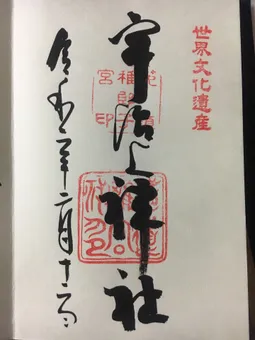 世界文化遺産
宇治上神社
令和二年二月十二日